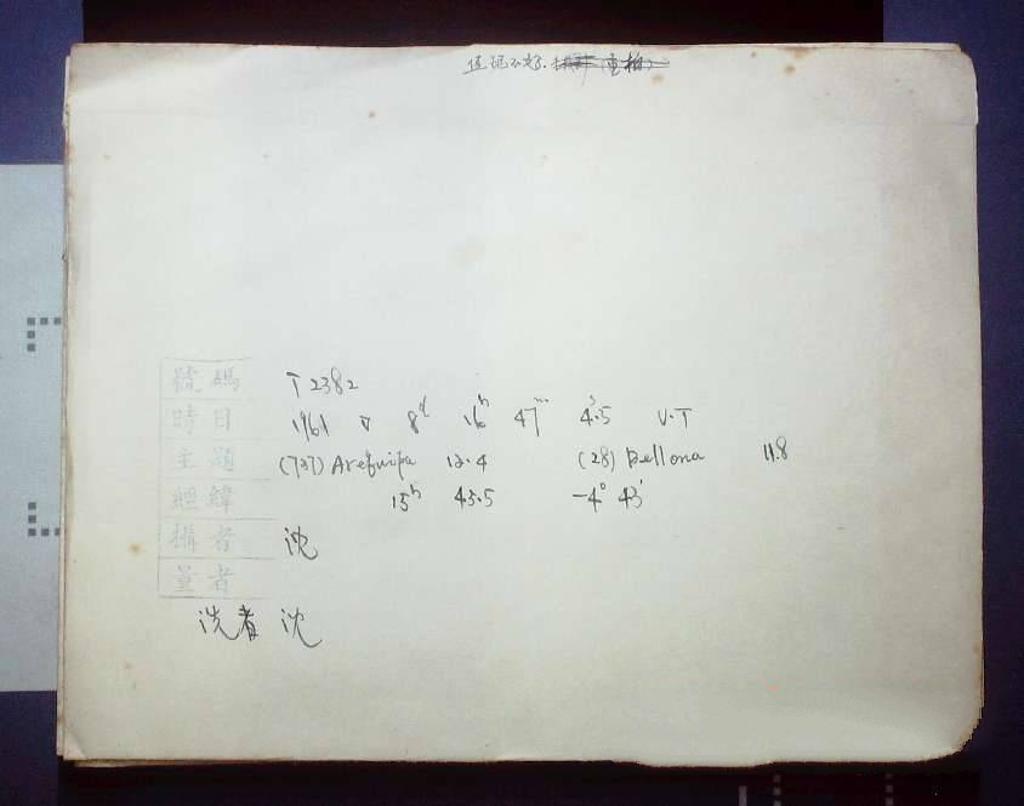 號碼 T 2382
時日 1961 V 8d 16h 47m 4s.5 U.T
主題 (737) Arequipa 12.4 (28) Bellona 11.8
經緯 15h 45.5 -4° 43'
攝者 沈
量者
洗者 沈